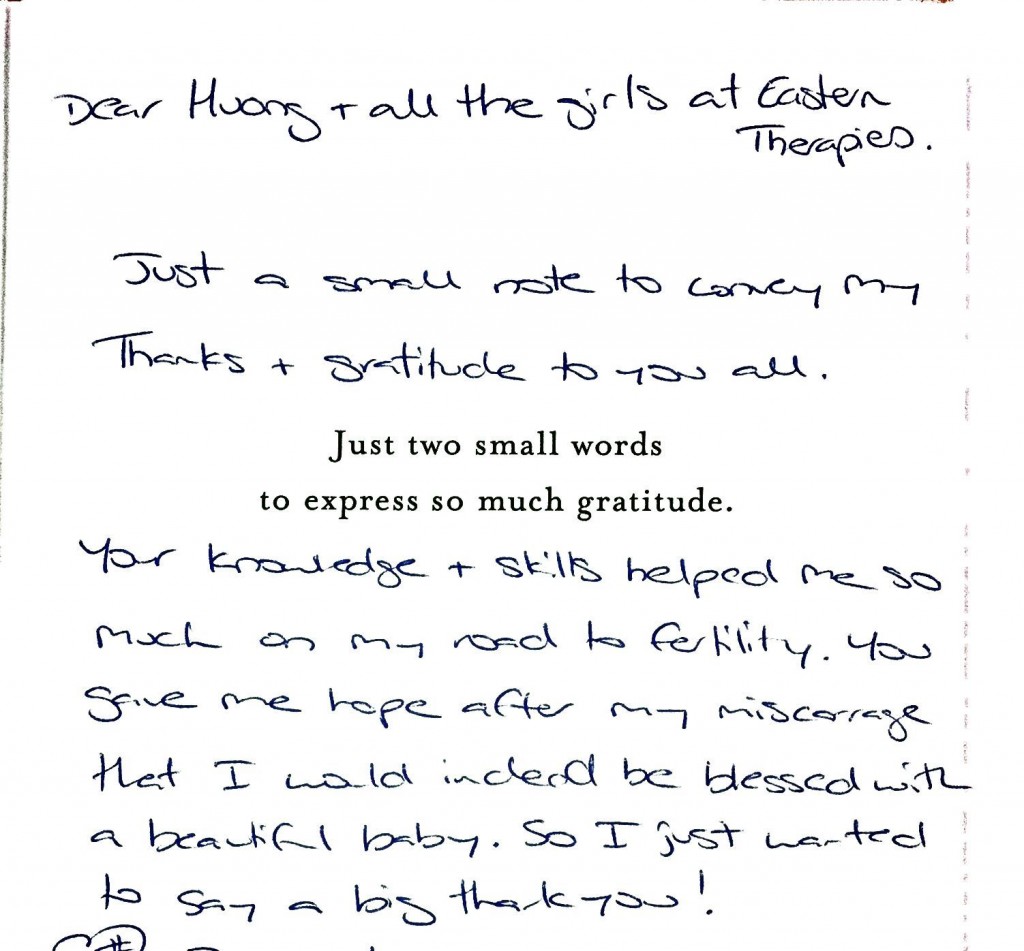 Dear Huong + all the girls at Eastern
Therapies.
Just a small note to convey my
Thanks + gratitude to you all.
Just two small words
to express so much gratitude.
Your knowledge + skills helped me so
much on my road to fertility. You
gave me hope after my miscarrage
that I would indeed be blessed with
a beautiful baby. So I just wanted
to say a big thank you!